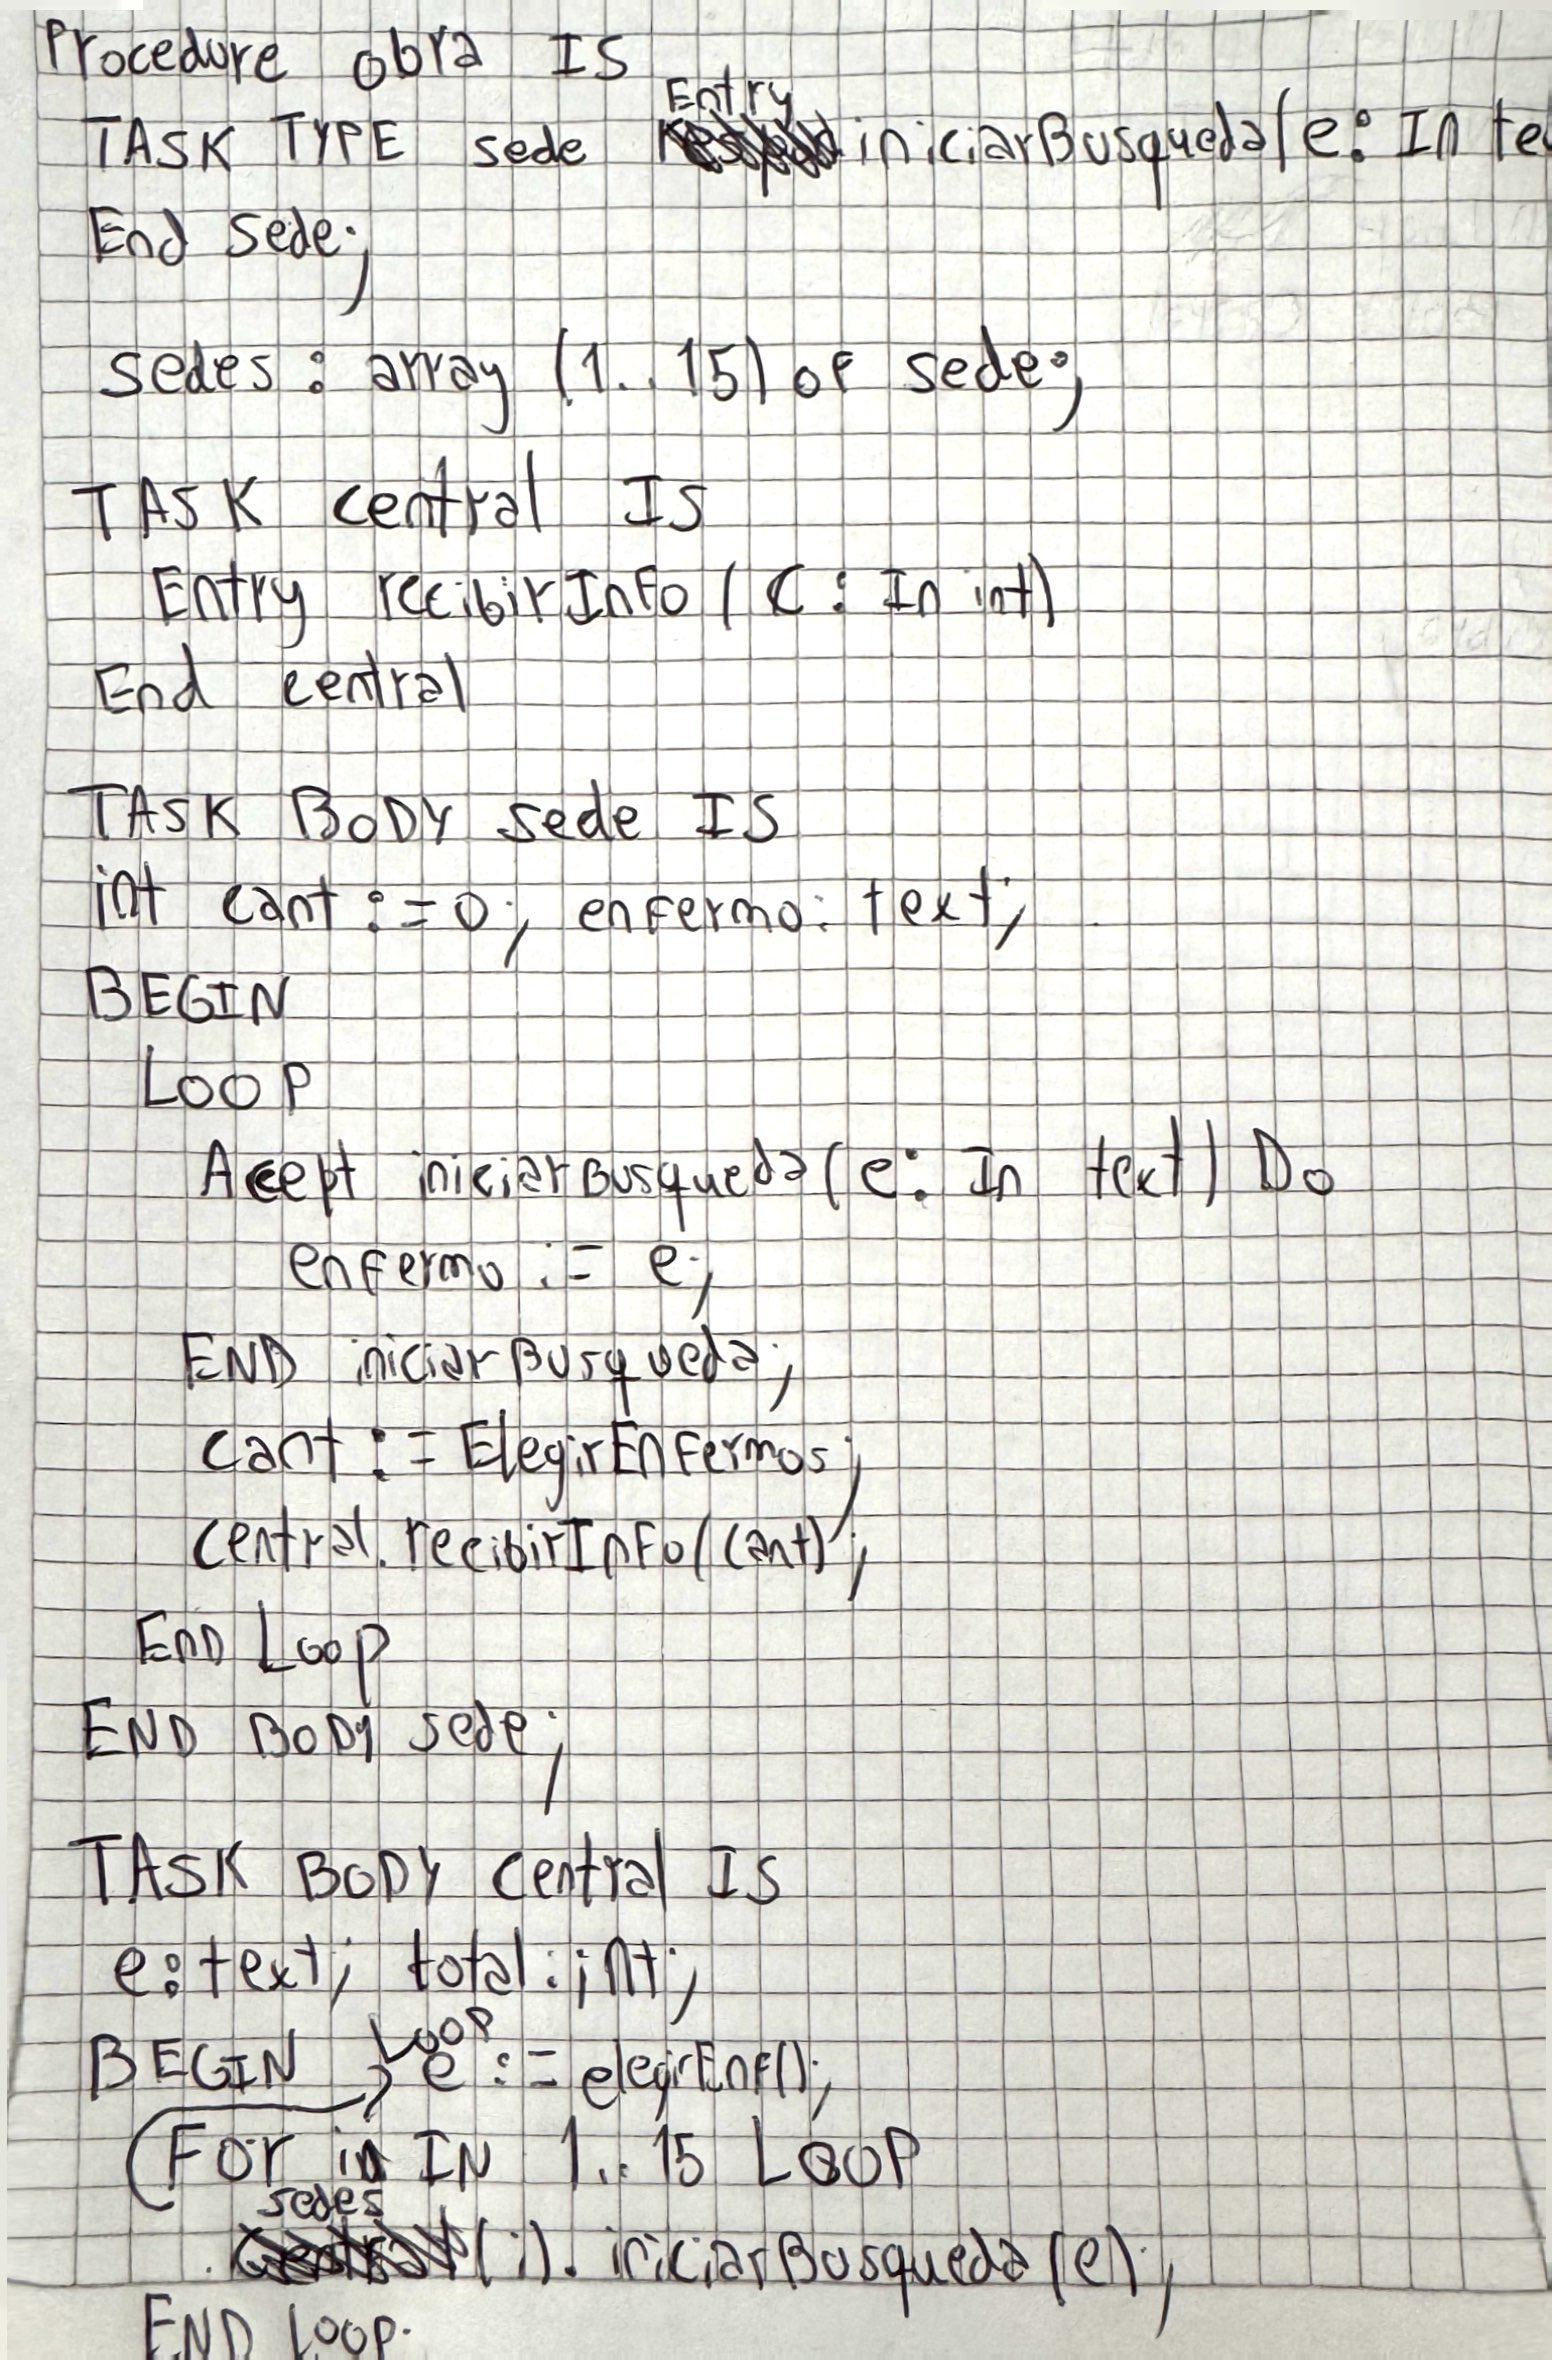 Procedure obra IS
TASK TYPE sede Entry iniciarBusqueda(e: In te
End sede;
sedes : array (1..15) of sede;
TASK central IS
Entry recibirInfo (C : In int)
End central
TASK BODY sede IS
int cant := 0; enfermo: text;
BEGIN
LOOP
Accept iniciarBusqueda(e: In text) Do
enfermo := e;
END iniciarBusqueda;
cant := ElegirEnfermos;
central.recibirInfo(cant);
End Loop
END BODY sede;
TASK BODY central IS
e: text; total: int;
BEGIN LOOP e := elegirEnf();
For in IN 1..15 LOOP
sedes(i).iniciarBusqueda(e);
END LOOP.